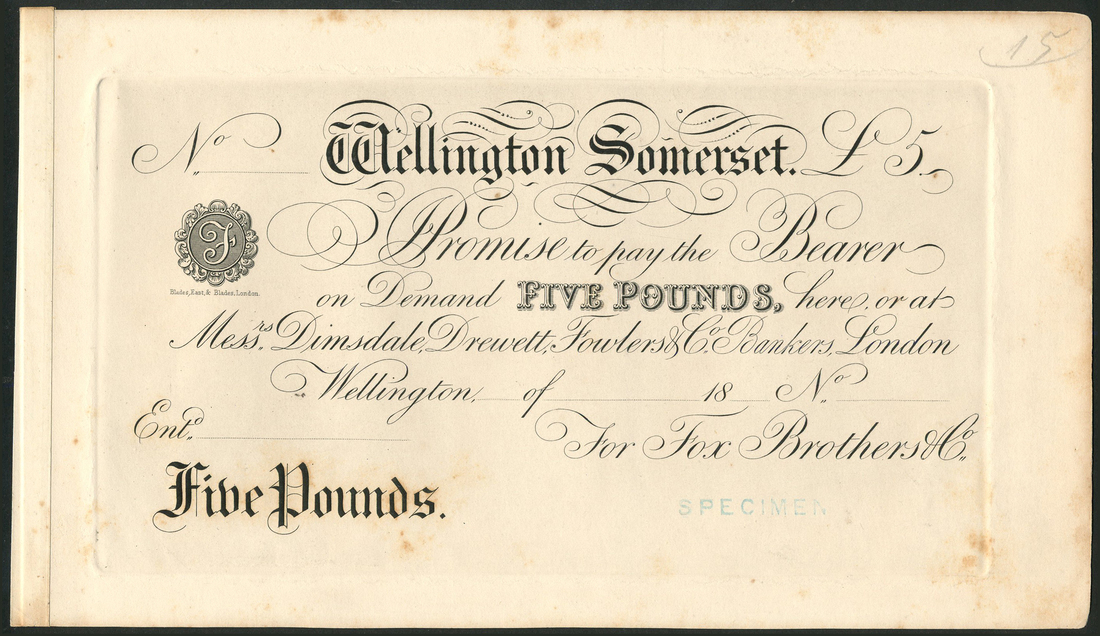 15
No Wellington Somerset. £5.
F
I Promise to pay the Bearer
Blades, East, & Blades, London.
on Demand FIVE POUNDS, here, or at
Messrs. Dimsdale, Drewett, Fowlers & Co. Bankers, London
Wellington, of 18 No.
Entd.
For Fox Brothers & Co.
Five Pounds.
SPECIMEN